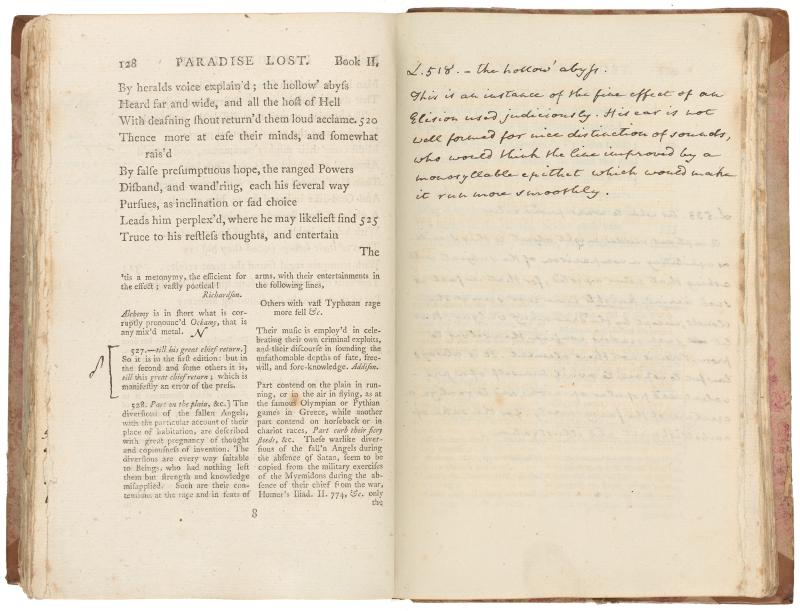 128 PARADISE LOST. Book II.
By heralds voice explain'd; the hollow' abyſs
Heard far and wide, and all the hoſt of Hell
With deafning ſhout return'd them loud acclame. 520
Thence more at eaſe their minds, and ſomewhat
rais'd
By falſe preſumptuous hope, the ranged Powers
Diſband, and wand'ring, each his ſeveral way
Purſues, as inclination or ſad choice
Leads him perplex'd, where he may likelieſt find 525
Truce to his reſtleſs thoughts, and entertain
The
'tis a metonymy, the efficient for
the effect; vaſtly poetical!
Richardſon.
Alchemy is in ſhort what is cor-
ruptly pronounc'd Ockamy, that is
any mix'd metal. N
527.—till his great chief return.]
So it is in the firſt edition: but in
the ſecond and ſome others it is,
till this great chief return; which is
manifeſtly an error of the preſs.
528. Part on the plain, &c.] The
diverſions of the fallen Angels,
with the particular account of their
place of habitation, are deſcribed
with great pregnancy of thought
and copiouſneſs of invention. The
diverſions are every way ſuitable
to Beings, who had nothing left
them but ſtrength and knowledge
miſapplied. Such are their con-
tentions at the race and in feats of
arms, with their entertainments in
the following lines,
Others with vaſt Typhœan rage
more fell &c.
Their muſic is employ'd in cele-
brating their own criminal exploits,
and their diſcourſe in ſounding the
unfathomable depths of fate, free-
will, and fore-knowledge. Addiſon.
Part contend on the plain in run-
ning, or in the air in flying, as at
the famous Olympian or Pythian
games in Greece, while another
part contend on horſeback or in
chariot races, Part curb their fiery
ſteeds, &c. Theſe warlike diver-
ſions of the fall'n Angels during
the abſence of Satan, ſeem to be
copied from the military exerciſes
of the Myrmidons during the ab-
ſence of their chief from the war,
Homer's Iliad. II. 774, &c. only
the
8
L.518. - the hollow' abyſs.
This is an instance of the fine effect of an
Elision used judiciously. His ear is not
well formed for nice distinction of sounds,
who would think the line improved by a
monosyllable epithet which would make
it run more smoothly.